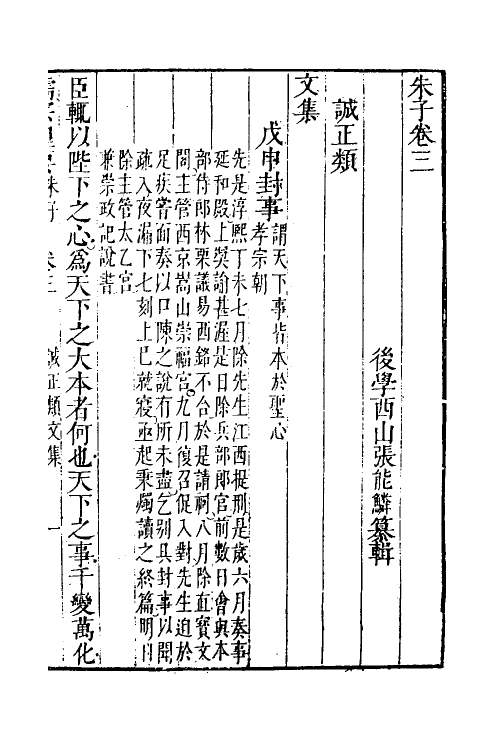 朱子卷三
後學西山張能鱗纂輯
誠正類
文集
戊申封事
孝宗朝
謂天下事皆本於聖心
先是淳熙丁未七月除先生江西提刑是歲六月奏事
延和殿上奬諭甚渥是日除兵部郎官前數日會與本
部侍郎林栗議易西銘不合於是請祠八月除直寳文
閣主管西京嵩山崇福宮九月復召促入對先生迫於
足疾嘗面奏以口陳之說有所未盡乞别具封事以聞
疏入夜漏下七刻上已就寢亟起秉燭讀之終篇明日
除主管太乙宮
兼崇政記說書
臣輒以陛下之心爲天下之大本者何也天下之事千變萬化
朱子 卷三 誠正類文集 一